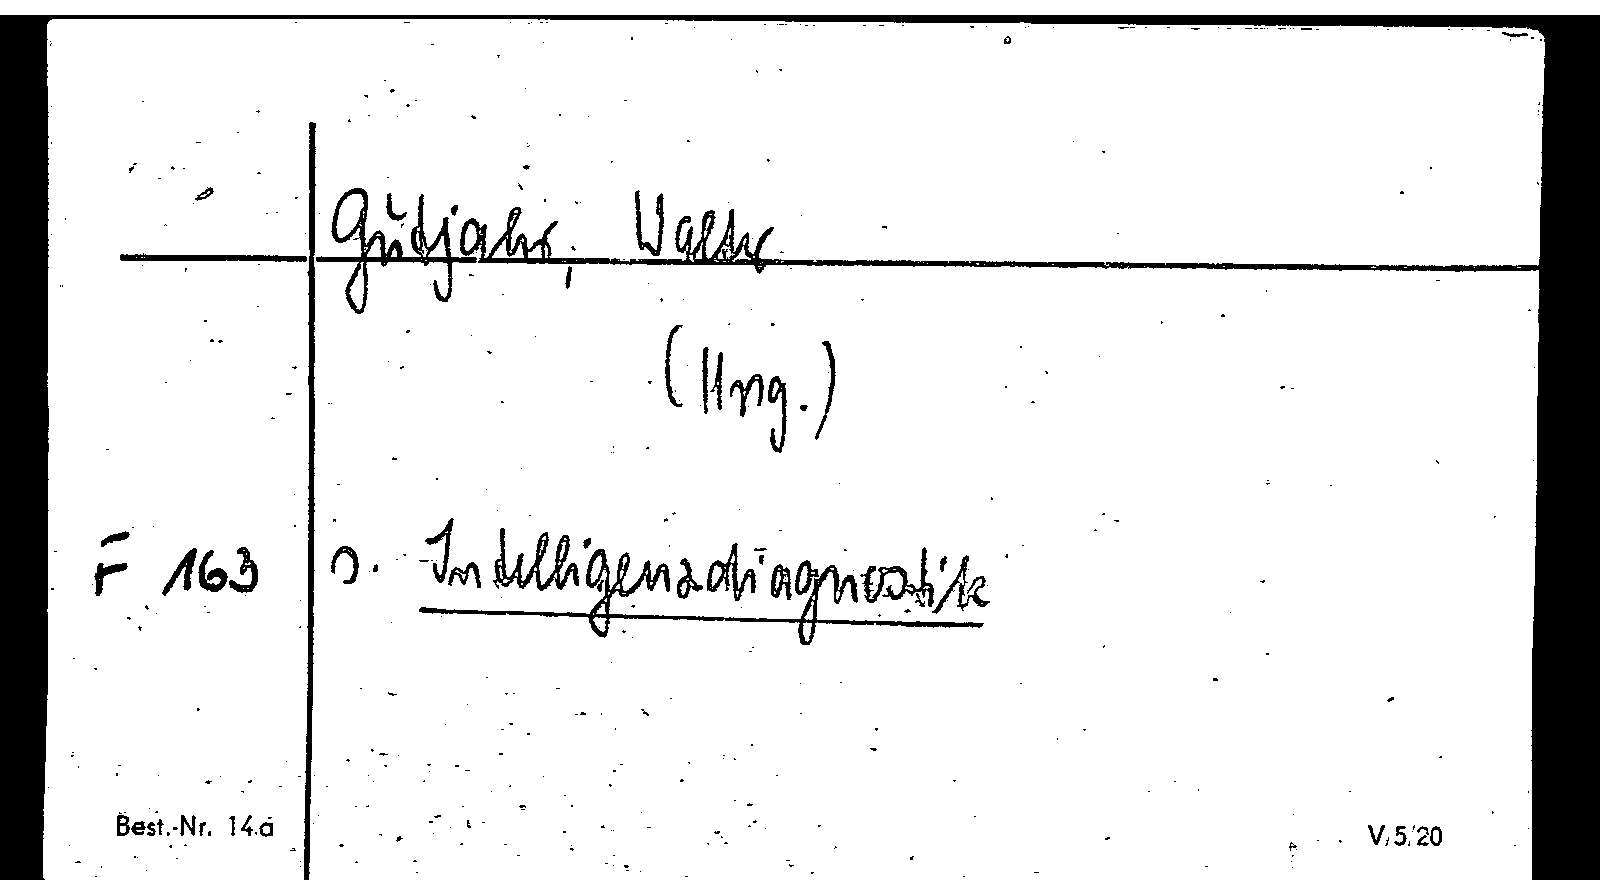 Gutjahr, Walter
(Hrsg.)
F 163 s. Intelligenzdiagnostik
Best.-Nr. 14a V/5/20